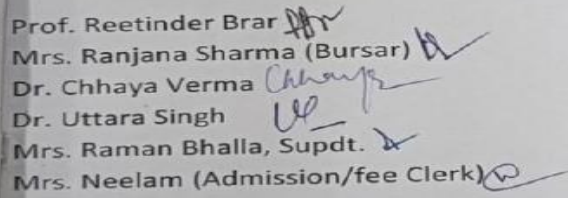 Prof. Reetinder Brar
Mrs. Ranjana Sharma (Bursar)
Dr. Chhaya Verma Chhaya
Dr. Uttara Singh
Mrs. Raman Bhalla, Supdt.
Mrs. Neelam (Admission/fee Clerk)